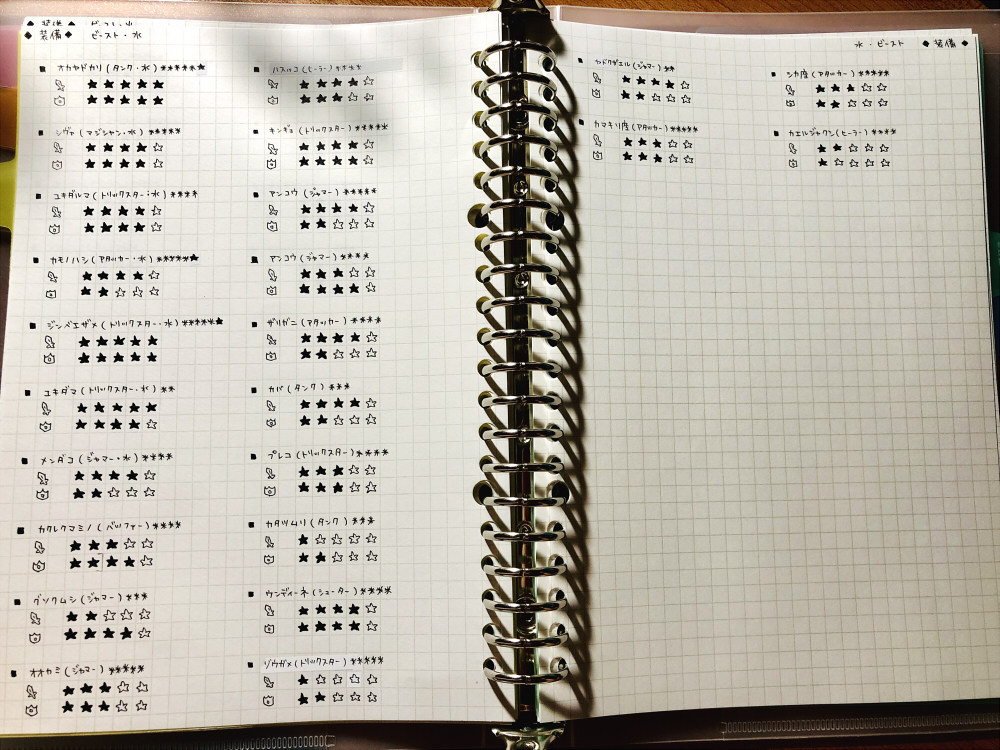 ◆ 装備 ◆ ビースト・水
■ オカヤドカリ(タンク・水)*****★
★★★★★
★★★★★
■ シヴァ(マジシャン・水)*****
★★★★☆
★★★★☆
■ ユキダルマ(トリックスター・水)****
★★★★☆
★★★★☆
■ カモノハシ(アタッカー・水)*****★
★★★★☆
★★☆☆☆
■ ジンベエザメ(トリックスター・水)*****★
★★★★★
★★★★★
■ ユキダマ(トリックスター・水)**
★★★★★
★★★★☆
■ メンダコ(ジャマー・水)****
★★★★☆
★★☆☆☆
■ カクレクマミノ(バッファー)****
★★★☆☆
★★★★☆
■ グソクムシ(ジャマー)***
★★☆☆☆
★★★★☆
■ オオカミ(ジャマー)*****
★★★☆☆
★★★☆☆
■ (ヒーラー)****
★★★★☆
★★★☆☆
■ キンギョ(トリックスター)*****
★★★★☆
★★★★☆
■ アンコウ(ジャマー)*****
★★★★☆
★★☆☆☆
■ アンコウ(ジャマー)****
★★★☆☆
★★★★☆
■ ザリガニ(アタッカー)****
★★★★☆
★★☆☆☆
■ カバ(タンク)***
★★★★☆
★★☆☆☆
■ プレコ(トリックスター)****
★★★☆☆
★★★☆☆
■ カタツムリ(タンク)***
★☆☆☆☆
★★☆☆☆
■ ウンディーネ(シューター)****
★★★★☆
★★★★☆
■ ゾウガメ(トリックスター)*****
★☆☆☆☆
★★☆☆☆
水・ビースト ◆ 装備 ◆
■ ヤドクガエル(ジャマー)**
★★★★☆
★★☆☆☆
■ カマキリ座(アタッカー)*****
★★★☆☆
★★★☆☆
■ シカ座(アタッカー)*****
★★★☆☆
★★☆☆☆
■ カエルジャクン(ヒーラー)****
★★☆☆☆
★☆☆☆☆